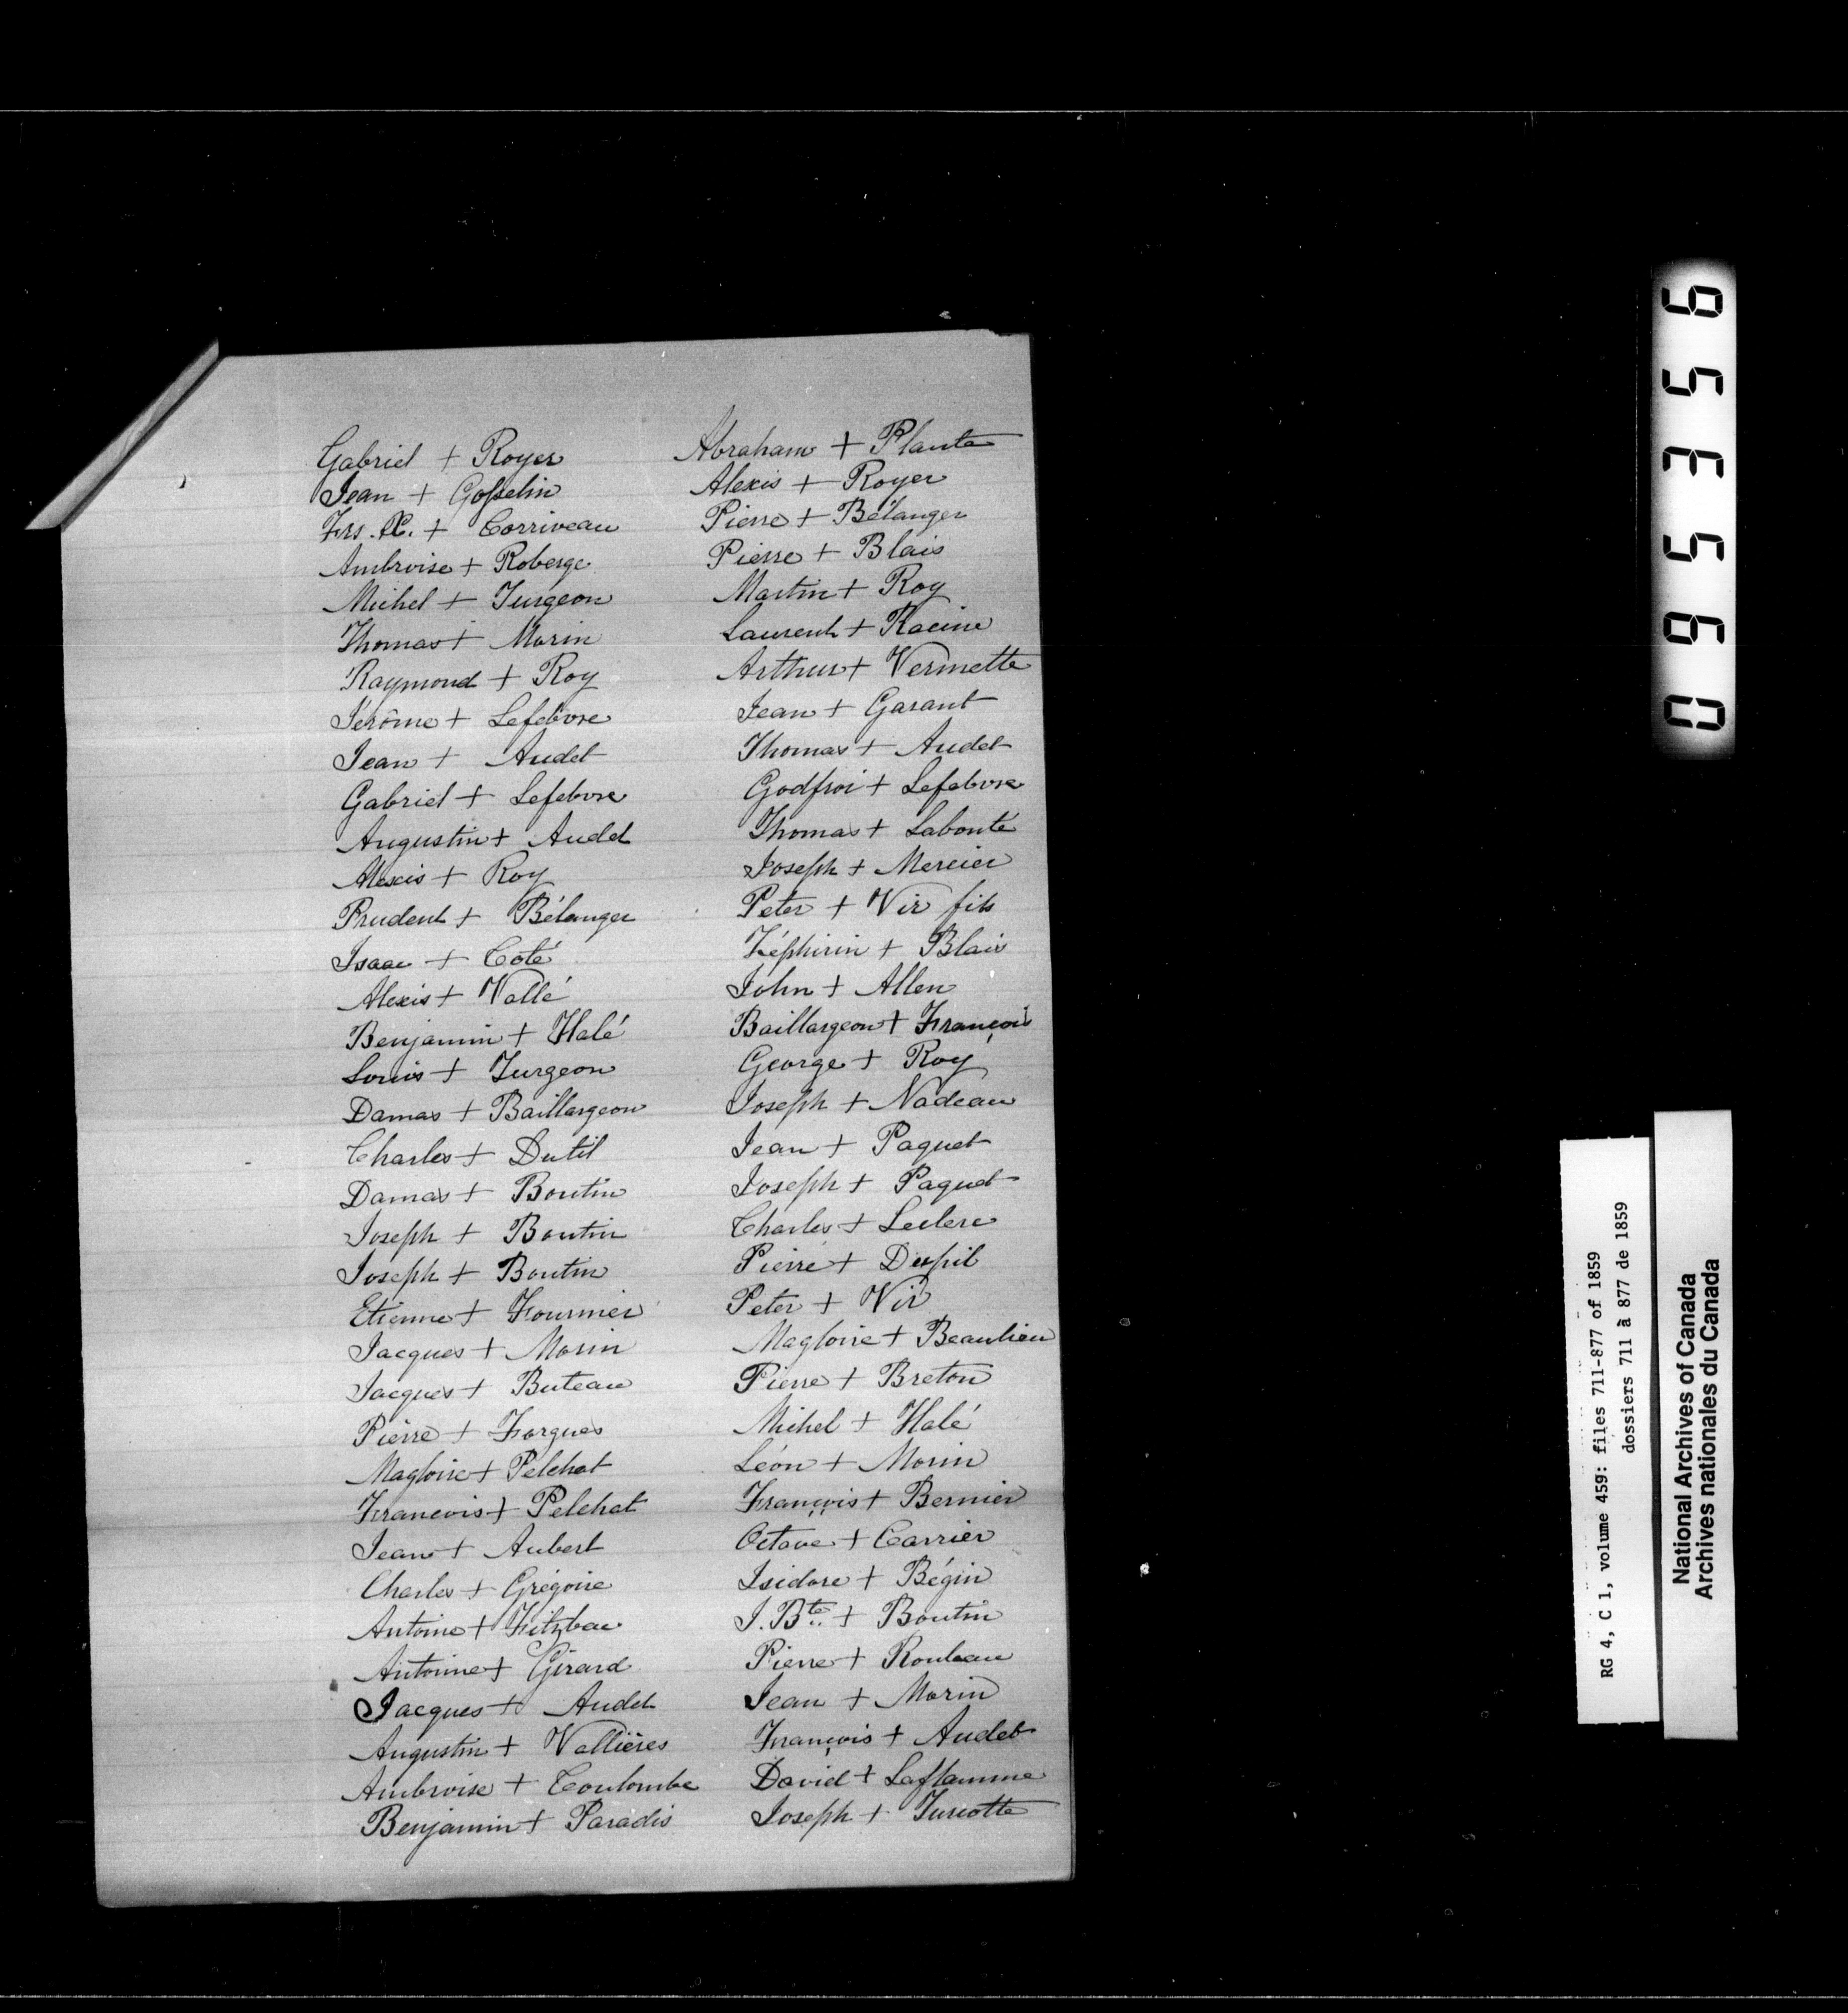 Gabriel + Royer
Jean + Gosselin
Frs. X. + Corriveau
Ambroise + Roberge
Michel + Turgeon
Thomas + Morin
Raymond + Roy
Jérôme + Lefebvre
Jean + Audet
Gabriel + Lefebvre
Augustin + Audet
Alexis + Roy
Prudent + Bélanger
Isaac + Coté
Alexis + Vallé
Benjamin + Halé
Louis + Turgeon
Damas + Baillargeon
Charles + Dutil
Damas + Boutin
Joseph + Boutin
Joseph + Boutin
Etienne + Fournier
Jacques + Morin
Jacques + Buteau
Pierre + Forgues
Magloire + Pelchat
Francois + Pelchat
Jean + Aubert
Charles + Grégoire
Antoine + Fitzbac
Antoine + Girard
Jacques + Audet
Augustin + Vallières
Ambroise + Coulombe
Benjamin + Paradis
Abraham + Plante
Alexis + Royer
Pierre + Bélanger
Pierre + Blais
Martin + Roy
Laurent + Racine
Arthur + Vermette
Jean + Garant
Thomas + Audet
Godfroi + Lefebvre
Thomas + Labonté
Joseph + Mercier
Peter + Vir fils
Zéphirin + Blais
John + Allen
Baillargeon + François
George + Roy
Joseph + Nadeau
Jean + Paquet
Joseph + Paquet
Charles + Leclerc
Pierre +
Peter + Vir
Magloire + Beaulieu
Pierre + Breton
Michel + Halé
Léon + Morin
François + Bernier
Octave + Carrier
Isidore + Bégin
J. Bte. + Boutin
Pierre + Rouleau
Jean + Morin
François + Audet
David + Laflamme
Joseph + Turcotte
095356
RG 4, C 1, volume 459: files 711-877 of 1859
dossiers 711 à 877 de 1859
National Archives of Canada
Archives nationales du Canada